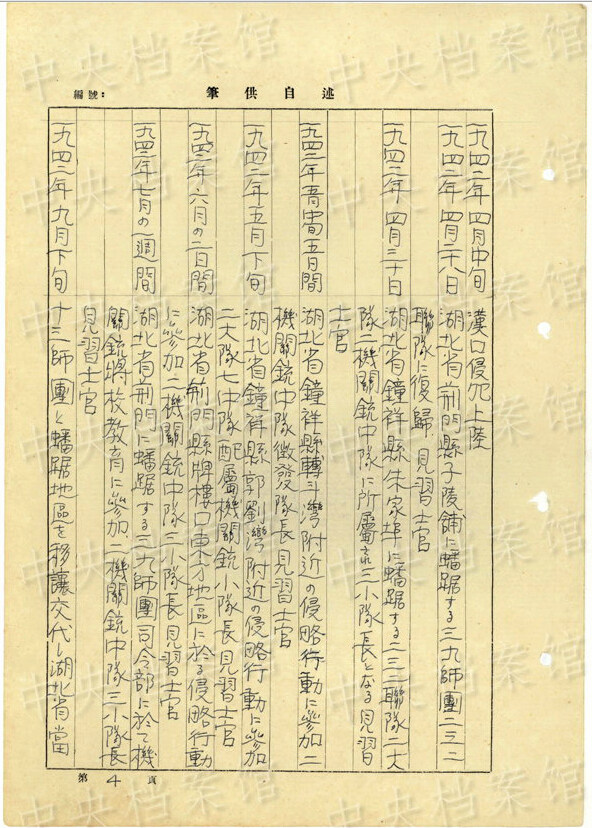 述自供筆
編號：
一九四二年四月中旬 漢口侵犯上陸
一九四二年四月二八日 湖北省荊門縣子陵鋪に蟠踞する三九師團二三二
聯隊に復歸 見習士官
一九四二年四月三十日 湖北省鐘祥縣朱家埠に蟠踞する二三二聯隊二大
隊二機關銃中隊に所屬 三小隊長となる見習
士官
一九四二年五月中旬五日間 湖北省鐘祥縣轉斗灣附近の侵略行動に參加 二
機關銃中隊徴發隊長 見習士官
一九四二年五月下旬 湖北省鐘祥縣郭劉灣附近の侵略行動に參加
二大隊七中隊配屬機關銃小隊長見習士官
一九四二年六月の二日間 湖北省荊門縣牌樓口東方地區に於る侵略行動
に參加 二機關銃中隊三小隊長見習士官
一九四二年七月の一週間 湖北省荊門に蟠踞する三九師團司令部に於て機
關銃將校教育に參加、二機關銃中隊三小隊長
見習士官
一九四二年九月下旬 十三師團と蟠踞地區を移讓交代し湖北省當
第4頁
中央档案馆
中央档案馆
中央档案馆
中央档案馆
中央档案馆
中央档案馆